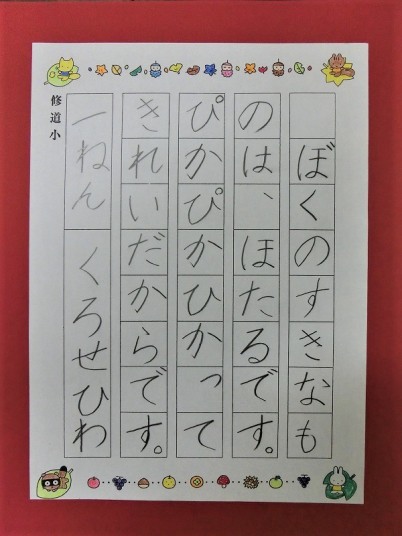 ぼくのすきなも
のは、ほたるです。
ぴかぴかひかって
きれいだからです。
一ねん くろせひわ
修道小